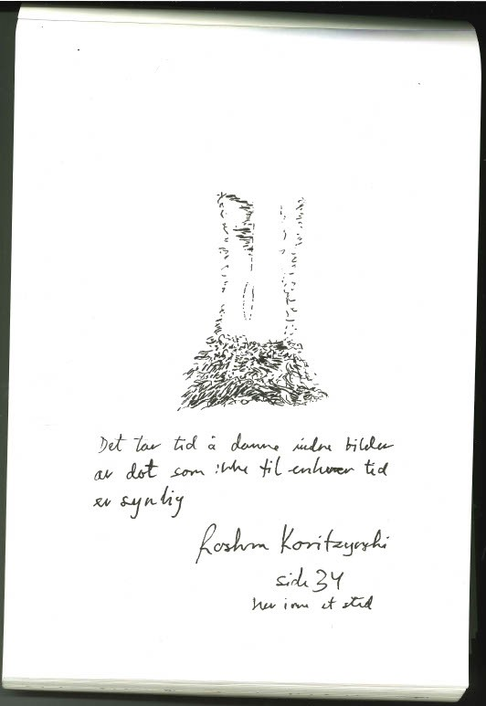 Det tar tid å danne indre bilder
av det som ikke til enhver tid
er synlig
Roskva Koritzynski
side 34
her inne et sted